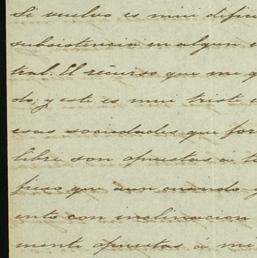 Si vuelvo es mui difici
subsistencia en algun
tral. El recurso que me q
do, y este es mui triste
esas sociedades que for
libre son opuestas a
peso que aun cuando
ento con inclinacion
mente opuestas a mi